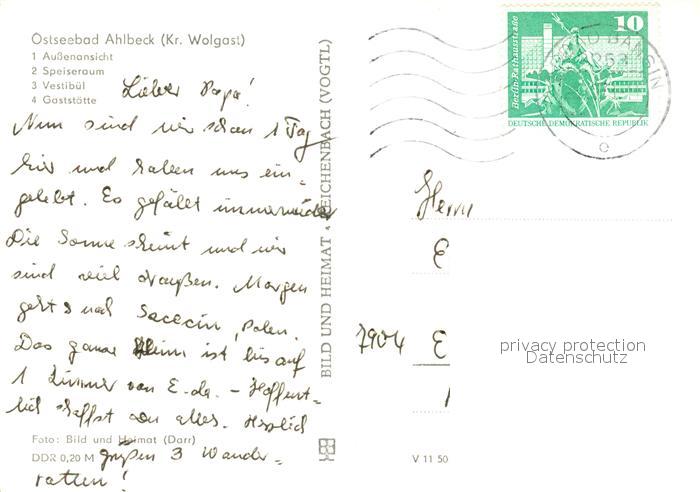 Ostseebad Ahlbeck (Kr. Wolgast)
1 Außenansicht
2 Speiseraum
3 Vestibül
4 Gaststätte
Lieber Papa!
Nun sind wir schon 1 Tag
hier und haben uns ein-
gelebt. Es gefällt immer wieder
Die Sonne scheint und wir
sind viel draußen. Morgen
geht's nach Sczecin, Polen.
Das ganze Heim ist bis auf
1 Zimmer von E. da. – Hoffent-
lich schaffst du alles. Herzlich
grüßen 3 Wander-
ratten!
Foto: Bild und Heimat (Darr)
DDR 0,20 M
BILD UND HEIMAT REICHENBACH (VOGTL)
V 11 50
Berlin-Rathausstraße
10
DEUTSCHE DEMOKRATISCHE REPUBLIK
BANSIN
Herrn
E
7904 E
privacy protection
Datenschutz